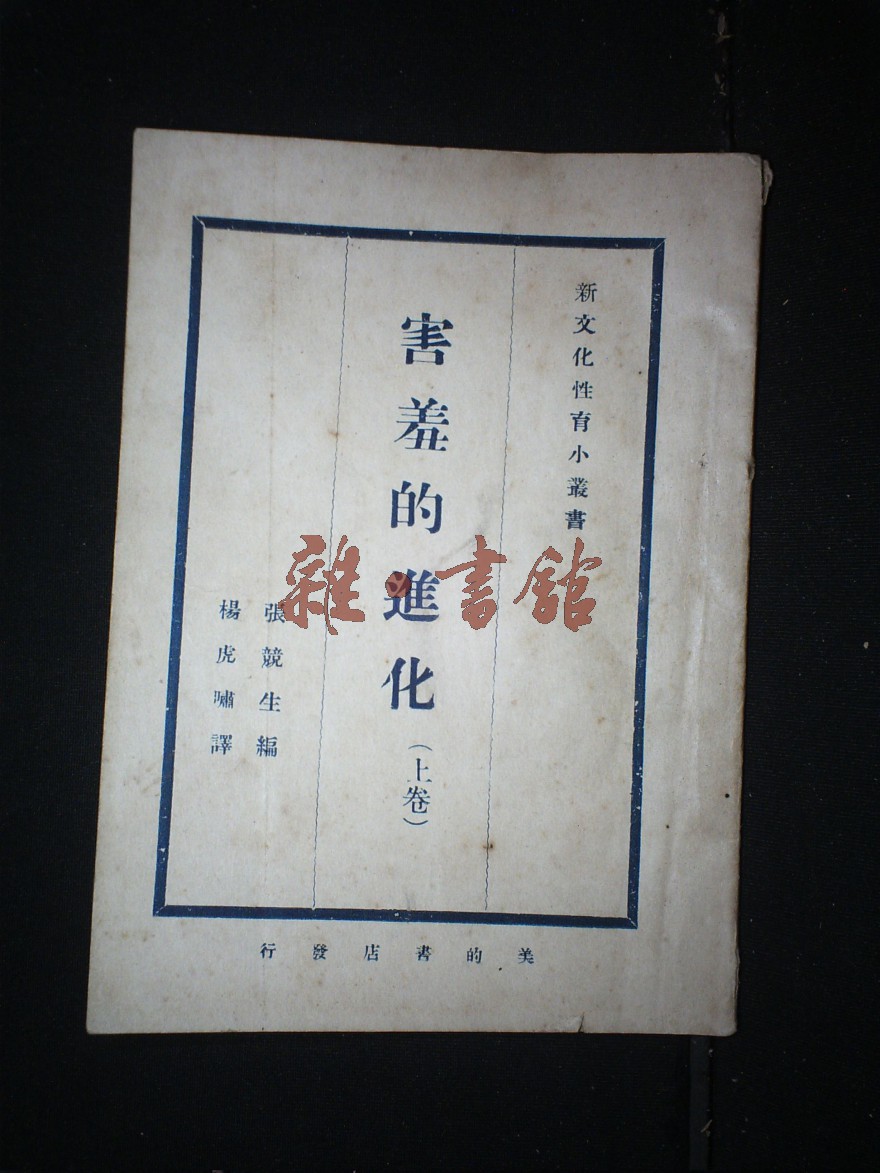 新文化性育小叢書
害羞的進化(上卷)
張競生編
楊虎嘯譯
美的書店發行
雜·書舘